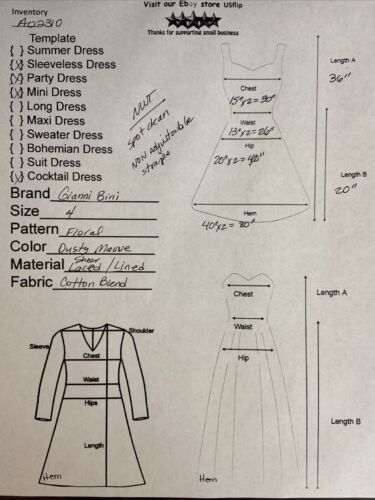 Visit our Ebay store USflip
Inventory
A02310
Thanks for supporting small business
Template
{ } Summer Dress
{X} Sleeveless Dress
{X} Party Dress
{X} Mini Dress
{ } Long Dress
{ } Maxi Dress
{ } Sweater Dress
{ } Bohemian Dress
{ } Suit Dress
{X} Cocktail Dress
NWT
Spot clean
Non adjustable
straps
Brand Gianni Bini
Size 4
Pattern Floral
Color Dusty Mauve
Material Shear Laced / Lined
Fabric Cotton Blend
Chest
15"x2=30"
Waist
13"x2=26"
Hip
20"x2=40"
Hem
40"x2=80"
Length A
36"
Length B
20"
Shoulder
Sleeve
Chest
Waist
Hips
Length
Hem
Chest
Waist
Hip
Hem
Length A
Length B